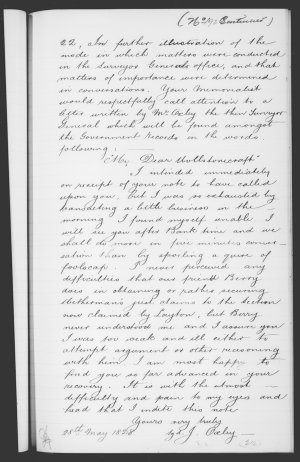 (76 9/3 Continued)
22. In further illustration of the
mode in which matters were conducted
in the Surveyor Generals office, and that
matters of importance were determined
in conversations. Your Memorialist
would respectfully call attention to a
letter written by Mr Oxley the then Surveyor
General which will be found amongst
the Government Records in the words
following:
"My Dear Wollstonecraft
I intended immediately
on receipt of your note to have called
upon you, but I was so exhausted by
transacting a little business in the
morning I found myself unable I
will see you after Bank time and we
shall do more in five minutes conver-
sation than by sporting a quire of
foolscap. I never perceived any
difficulties that our friend Berry
does in obtaining or rather securing
Wetherman's just claims to the section
now claimed by Layton, but Berry
never understood me and I assure you
I was too weak and ill either to
attempt argument or other reasoning
with him I am most happy to
find you so far advanced in your
recovery. It is with the utmost
difficulty and pain to my eyes and
head that I indite this note
Yours very truly
28th May 1828 J. Oxley
(22)